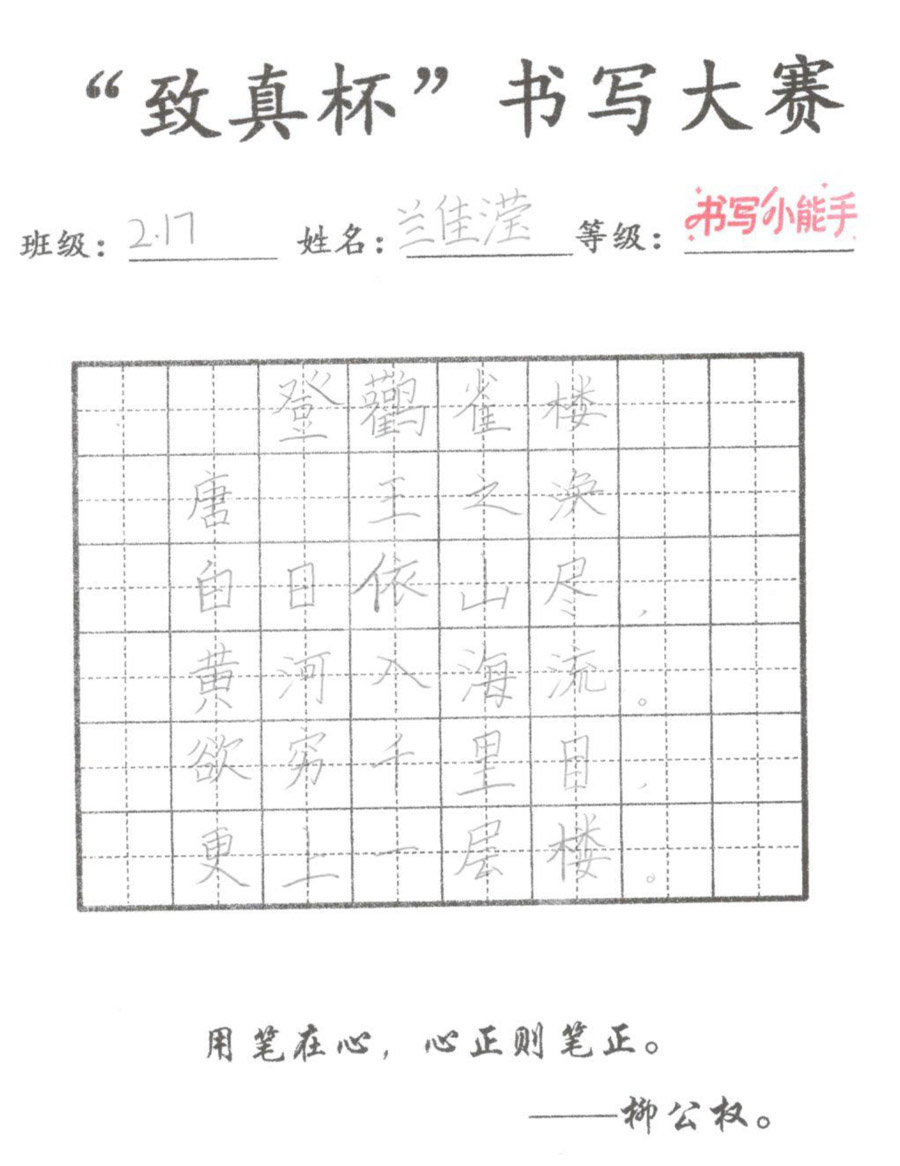 “致真杯”书写大赛
班级：2.17 姓名：兰佳滢 等级：书写小能手
登鸛雀楼
唐 王之涣
白日依山尽，
黄河入海流。
欲穷千里目，
更上一层楼。
用笔在心，心正则笔正。
——柳公权。